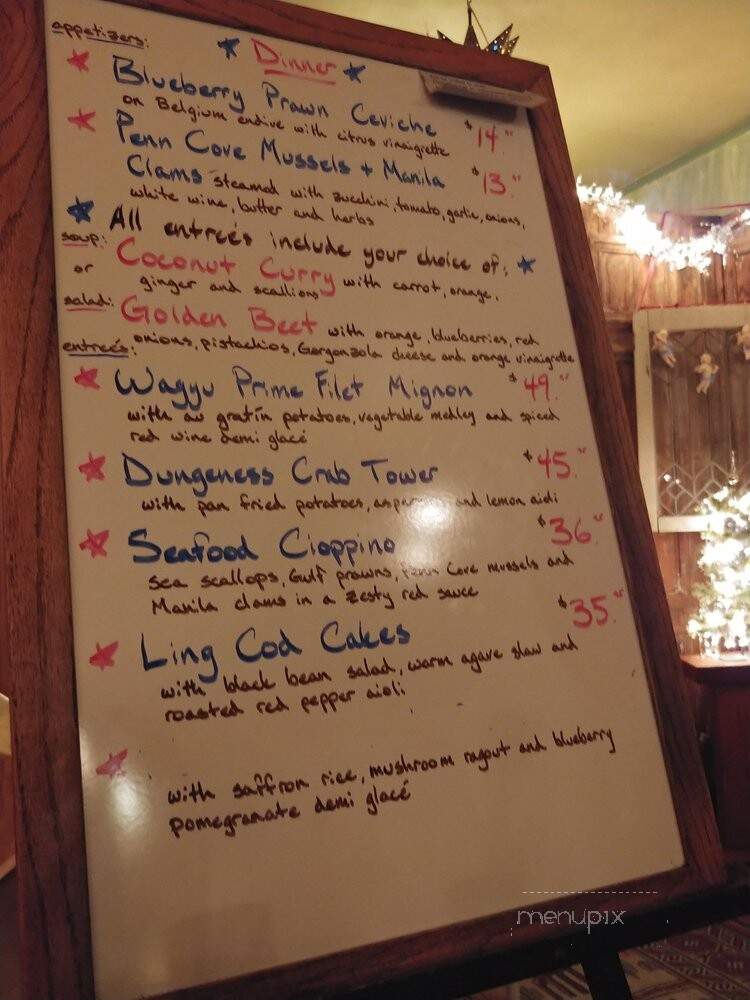 appetizers:
Dinner
Blueberry Prawn Ceviche $14.“
on Belgium endive with citrus vinaigrette
Penn Cove Mussels + Manila $13.“
Clams steamed with zucchini, tomato, garlic, onions,
white wine, butter and herbs
All entreés include your choice of:
soup: Coconut Curry with carrot, orange,
or ginger and scallions
salad: Golden Beet with orange, blueberries, red
entreés: onions, pistachios, Gorgonzola cheese and orange vinaigrette
Wagyu Prime Filet Mignon $49.“
with au gratin potatoes, vegetable medley and spiced
red wine demi glacé
Dungeness Crab Tower $45.“
with pan fried potatoes, and lemon aioli
Seafood Cioppino $36.“
sea scallops, Gulf prawns, Penn Cove mussels and
Manila clams in a zesty red sauce
Ling Cod Cakes $35.“
with black bean salad, warm agave slaw and
roasted red pepper aioli
with saffron rice, mushroom ragout and blueberry
pomegranate demi glacé
menupix